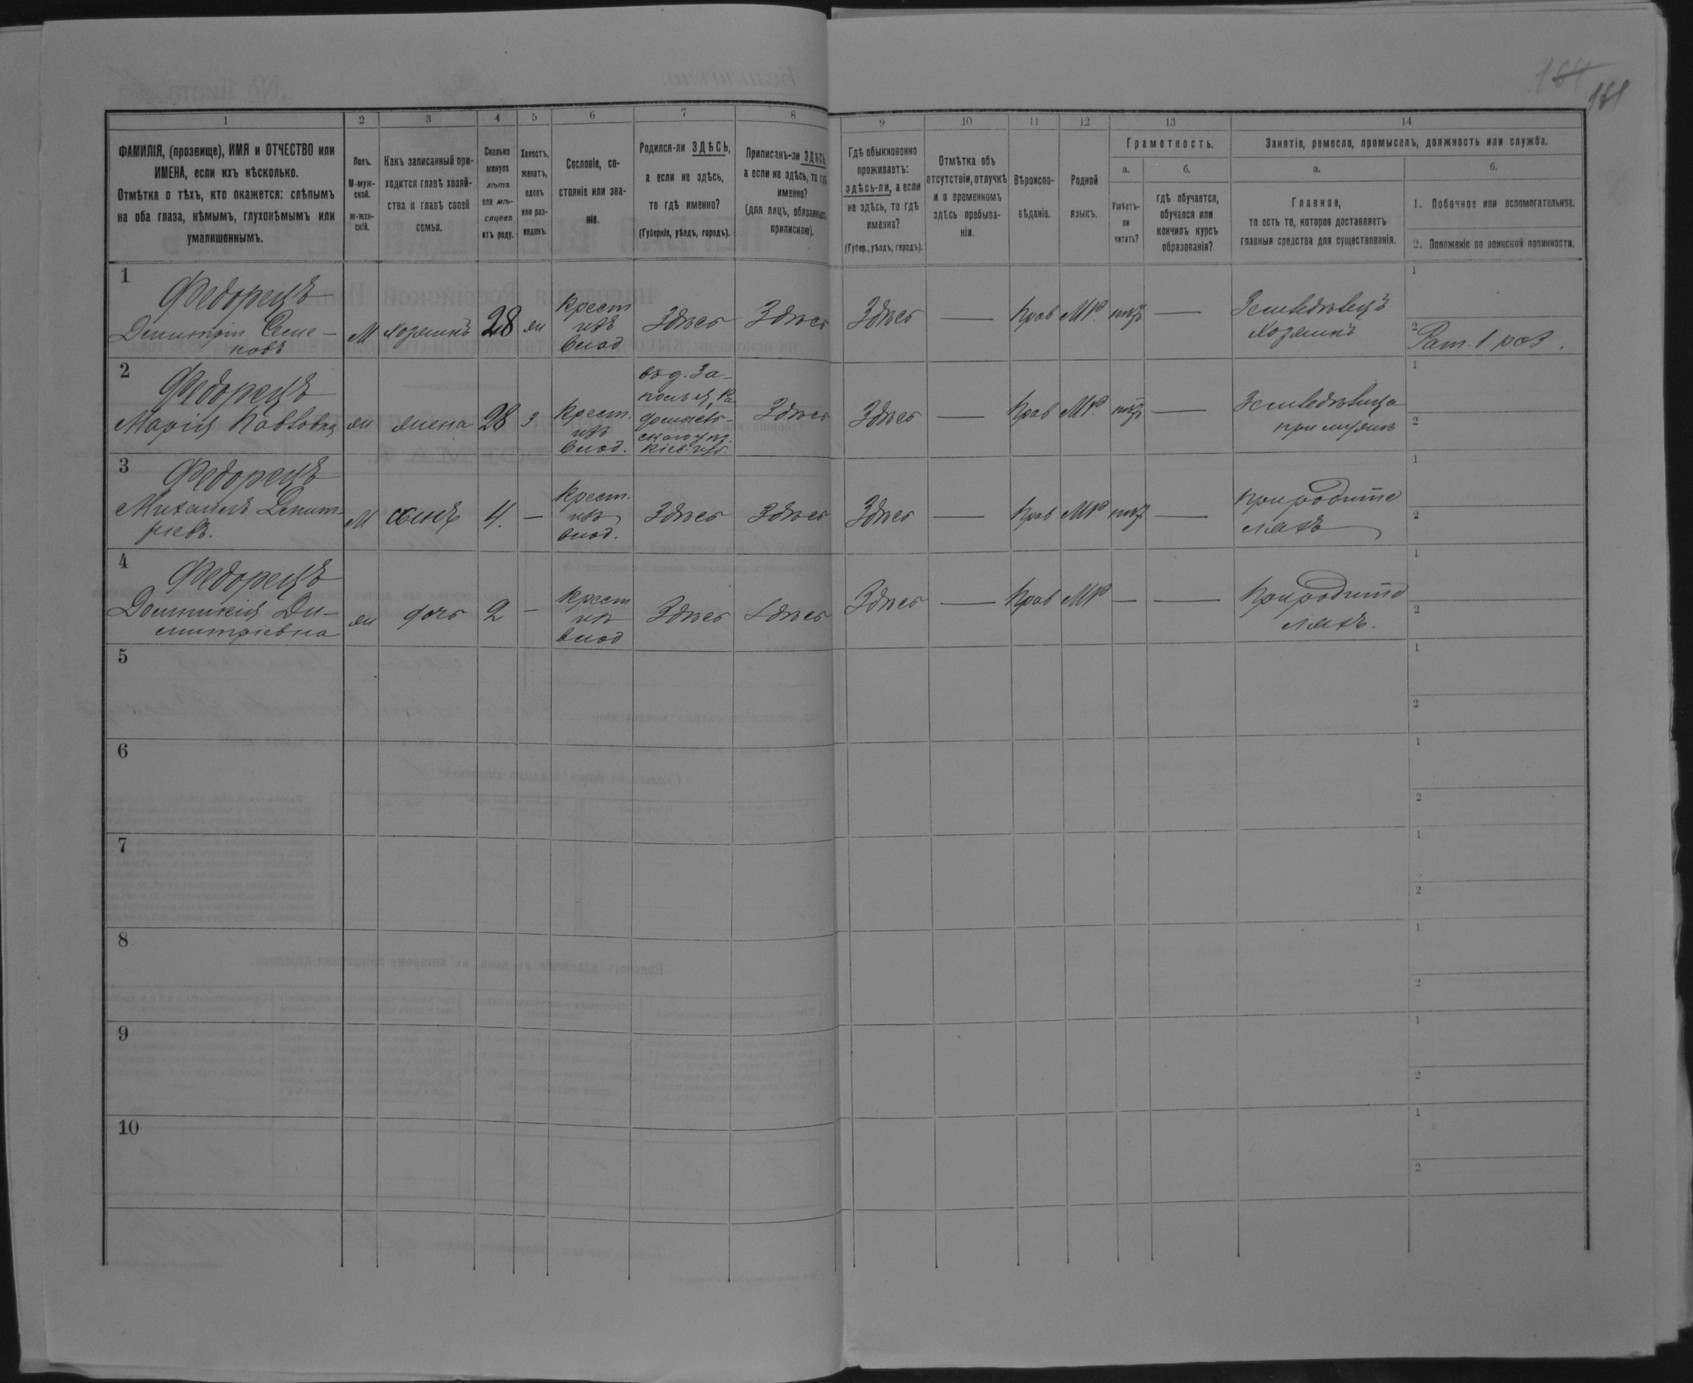 164
161
1 2 3 4 5 6 7 8 9 10 11 12 13 14
ФАМИЛІЯ, (прозвище), ИМЯ и ОТЧЕСТВО или
ИМЕНА, если ихъ нѣсколько.
Отмѣтка о тѣхъ, кто окажется: слѣпымъ
на оба глаза, нѣмымъ, глухонѣмымъ или
умалишеннымъ.
Полъ.
М-муж-
ской.
ж-жен-
скій.
Какъ записанный при-
ходится главѣ хозяй-
ства и главѣ своей
семьи.
Сколько
минуло
лѣтъ
или мѣ-
сяцевъ
отъ роду.
Холостъ,
женатъ,
вдовъ
или раз-
веденъ.
Сословіе, со-
стояніе или зва-
ніе.
Родился-ли ЗДѢСЬ,
а если не здѣсь,
то гдѣ именно?
(Губернія, уѣздъ, городъ).
Приписанъ-ли ЗДѢСЬ,
а если не здѣсь, то гдѣ
именно?
(для лицъ, обязанныхъ
припискою).
Гдѣ обыкновенно
проживаетъ:
здѣсь-ли, а если
не здѣсь, то гдѣ
именно?
(Губер., уѣздъ, городъ).
Отмѣтка объ
отсутствіи, отлучкѣ
и о временномъ
здѣсь пребыва-
ніи.
Вѣроиспо-
вѣданіе.
Родной
языкъ.
Грамотность.
а.
Умѣетъ-
ли
читать?
б.
гдѣ обучается,
обучался или
кончилъ курсъ
образованія?
Занятіе, ремесло, промыселъ, должность или служба.
а.
Главное,
то есть то, которое доставляетъ
главныя средства для существованія.
б.
1. Побочное или вспомогательное.
2. Положеніе по воинской повинности.
1
Федорецъ
Димитрій Семе-
новъ
М хозяинъ 28 ж
Крест
изъ
влад
Здѣсь Здѣсь Здѣсь — Прав МР. нѣт —
Земледѣлецъ
хозяинъ
1
2 Рат. 1 раз.
2
Федорецъ
Марія Павловна
ж жена 28 з
Крест.
изъ
влад.
Здѣсь Здѣсь — Прав МР. нѣт —
Земледѣлица
при мужѣ
1
2
3
Федорецъ
Михаилъ Димит-
ріевъ.
М сынъ 4. —
Крест.
изъ
влад.
Здѣсь Здѣсь Здѣсь — Прав МР. нѣт —
При родите
ляхъ
1
2
4
Федорецъ
Домникія Ди-
митріевна
ж дочь 2 —
Крест
изъ
влад
Здѣсь Здѣсь Здѣсь — Прав МР — —
При родите
ляхъ.
1
2
5
1
2
6
1
2
7
1
2
8
1
2
9
1
2
10
1
2